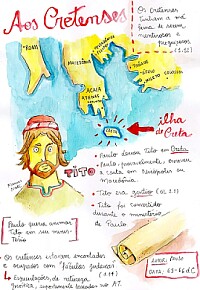 Aos Cretenses
Os cretenses
tinham a má
fama de serem
mentirosos e
preguiçosos
(1.12)
ROMA
MACEDÔNIA
ACAIA
ATENAS
CORINTO
ÉFESO
MILETO
COLOSSOS
CRETA
ilha de
Creta
TITO
• Paulo deixou Tito em Creta
• Paulo, provavelmente, escreveu
a carta em Nicópolis ou
Macedônia.
• Tito era gentio (Gl 2.3)
• Tito foi convertido
durante o ministério
de Paulo
Paulo queria animar
Tito em seu minis-
tério
Os cretenses estavam encantados
e ocupados com "fábulas judaicas"
(1.14)
↳ Especulações, de natureza
gnóstica, supostamente baseadas no AT.
Autor: Paulo
Data: 63-65 d.C.